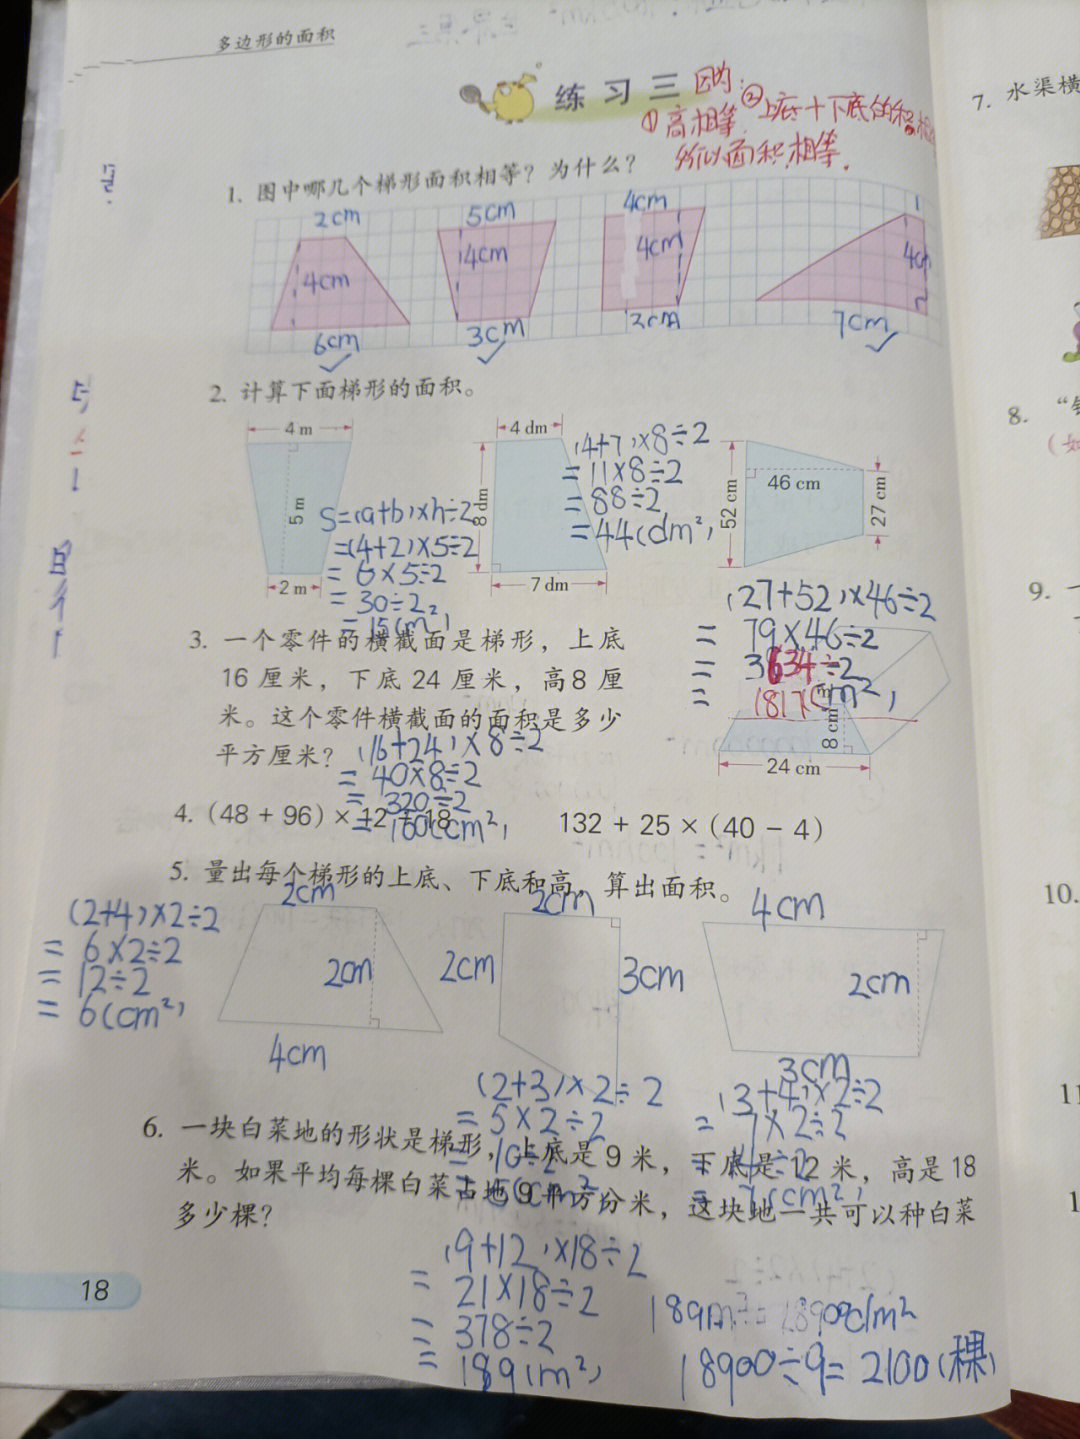 多边形的面积
练习三
因为:
①高相等 ②上底+下底的和相
所以面积相等.
1. 图中哪几个梯形面积相等？为什么？
2cm 5cm 4cm 1
4cm 4cm 4cm
6cm 3cm 7cm
2. 计算下面梯形的面积。
4 m
5 m
2 m
S=(a+b)×h÷2
=(4+2)×5÷2
=6×5÷2
=30÷2
=15(m²)
4 dm
8 dm
7 dm
(4+7)×8÷2
=11×8÷2
=88÷2
=44(dm²)
52 cm
46 cm
27 cm
(27+52)×46÷2
=79×46÷2
=3634÷2
=1817(cm²)
3. 一个零件的横截面是梯形，上底
16 厘米，下底 24 厘米，高8 厘
米。这个零件横截面的面积是多少
平方厘米？
(16+24)×8÷2
=40×8÷2
=320÷2
=160(cm²)
8 cm
24 cm
4. (48 + 96) × 12 ÷ 18
132 + 25 × (40 − 4)
5. 量出每个梯形的上底、下底和高，算出面积。
2cm
2cm
4cm
(2+4)×2÷2
=6×2÷2
=12÷2
=6(cm²)
2cm
2cm
3cm
(2+3)×2÷2
=5×2÷2
=10÷2
=5(cm²)
4cm
2cm
3cm
(3+4)×2÷2
=7×2÷2
=14÷2
=7(cm²)
6. 一块白菜地的形状是梯形，上底是 9 米，下底是 12 米，高是 18
米。如果平均每棵白菜占地 9 平方分米，这块地一共可以种白菜
多少棵？
(9+12)×18÷2
=21×18÷2
=378÷2
=189(m²)
189m²=18900dm²
18900÷9=2100(棵)
18
7. 水渠横
8.
9.
10.
11